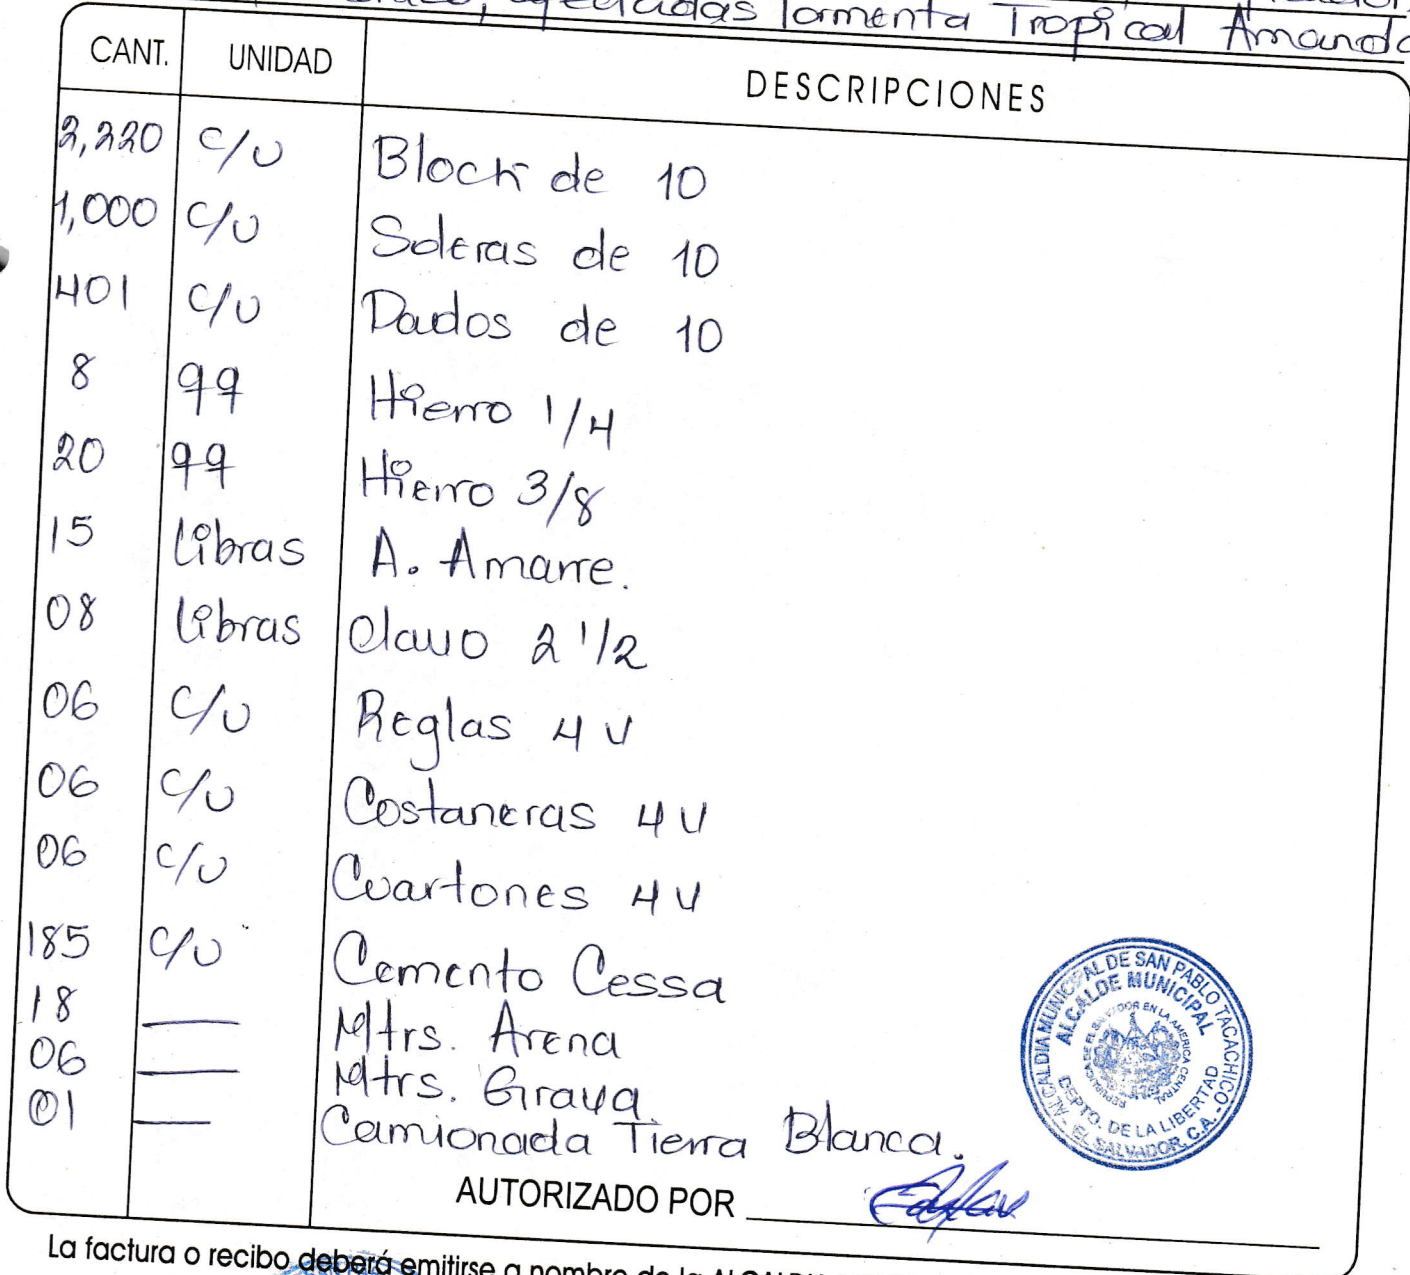 afectadas Tormenta Tropical Amanda
CANT. UNIDAD DESCRIPCIONES
2,220 c/u Block de 10
1,000 c/u Soleras de 10
401 c/u Dados de 10
8 qq Hierro 1/4
20 qq Hierro 3/8
15 libras A. Amarre.
08 libras Clavo 2 1/2
06 c/u Reglas 4 v
06 c/u Costaneras 4 v
06 c/u Cuartones 4 v
185 c/u Cemento Cessa
18 — Mtrs. Arena
06 — Mtrs. Grava.
01 — Camionada Tierra Blanca.
ALCALDIA MUNICIPAL DE SAN PABLO TACACHICO
ALCALDE MUNICIPAL
REPUBLICA DE EL SALVADOR EN LA AMERICA CENTRAL
DEPTO. DE LA LIBERTAD
EL SALVADOR, C.A.
AUTORIZADO POR
La factura o recibo deberá emitirse a nombre de la